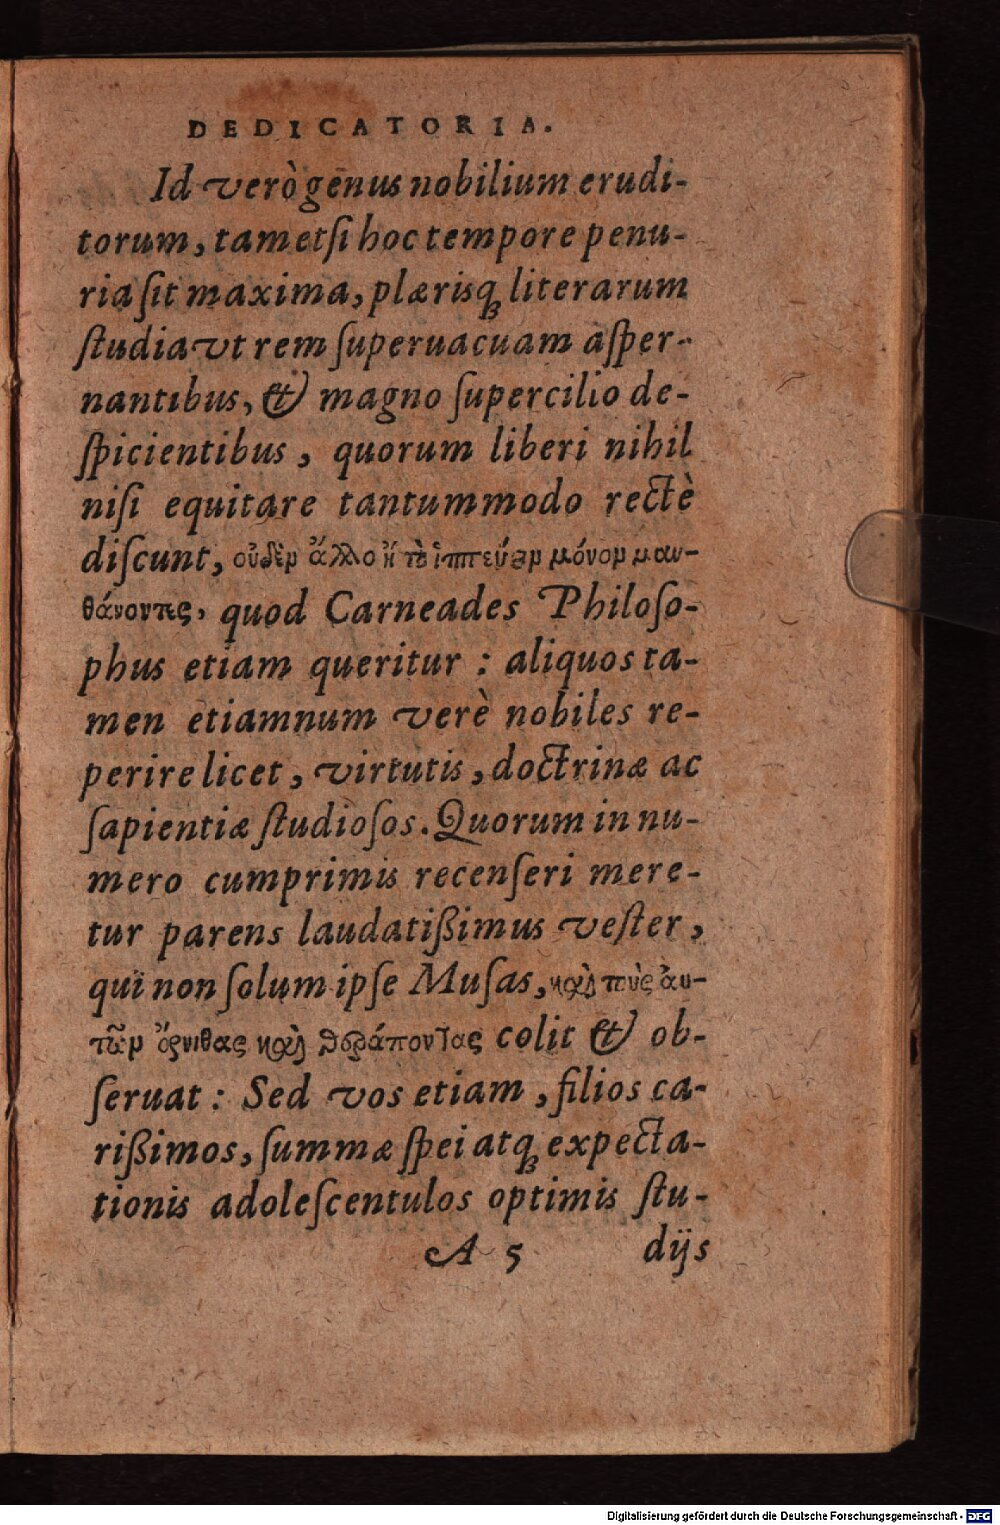 DEDICATORIA.
Id verò genus nobilium erudi-
torum, tametſi hoc tempore penu-
ria ſit maxima, plærisq́ʒ literarum
ſtudia vt rem ſuperuacuam aſper-
nantibus, & magno ſupercilio de-
ſpicientibus, quorum liberi nihil
niſi equitare tantummodo rectè
diſcunt, οὐδὲν ἄλλο ἢ τὸ ἱππεύειν μόνον μαν-
θάνοντες, quod Carneades Philoſo-
phus etiam queritur : aliquos ta-
men etiamnum verè nobiles re-
perire licet, virtutis, doctrinæ ac
ſapientiæ ſtudioſos. Quorum in nu-
mero cumprimis recenſeri mere-
tur parens laudatißimus veſter,
qui non ſolum ipſe Muſas, καὶ τοὺς αυ-
τῶν ὄρνιθας καὶ θεράποντας colit & ob-
ſeruat : Sed vos etiam, filios ca-
rißimos, ſummæ ſpei atqʒ expecta-
tionis adoleſcentulos optimis ſtu-
A 5 dijs
Digitalisierung gefördert durch die Deutsche Forschungsgemeinschaft - DFG